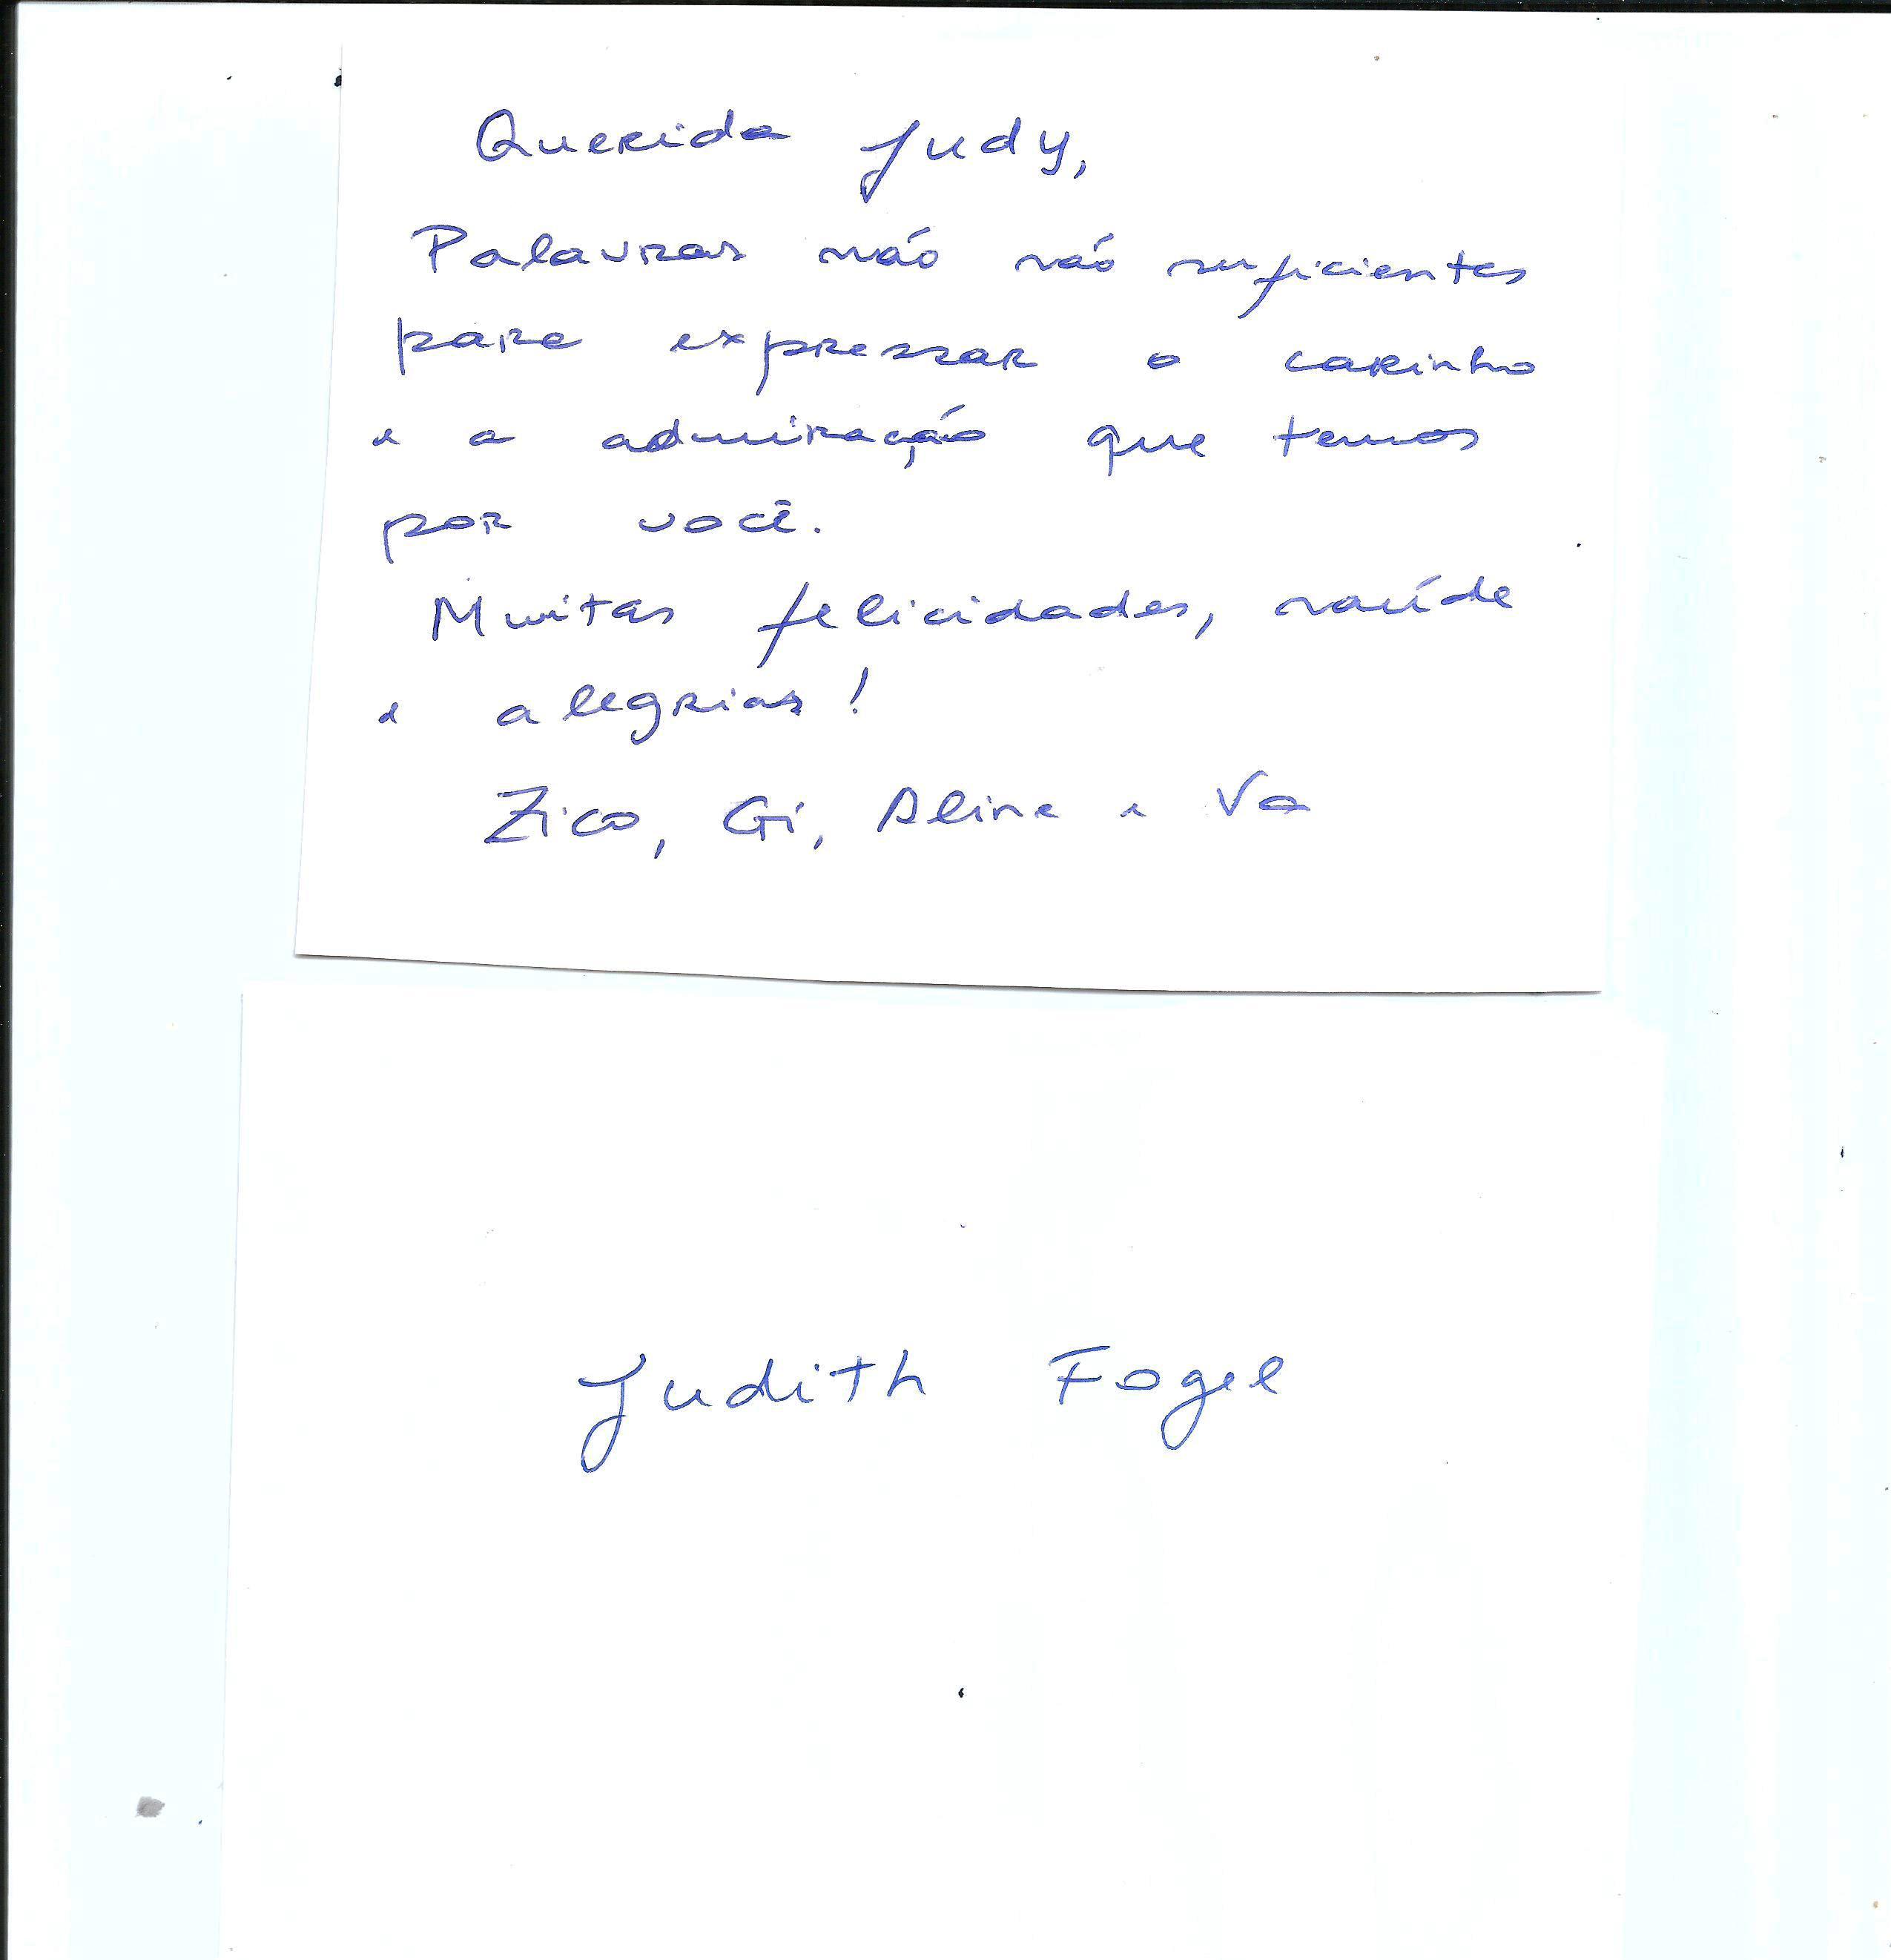 Querida Judy,
Palavras não são suficientes
para expressar o carinho
e a admiração que temos
por você.
Muitas felicidades, saúde
e alegrias!
Zico, Gi, Aline e Va
Judith Fogel